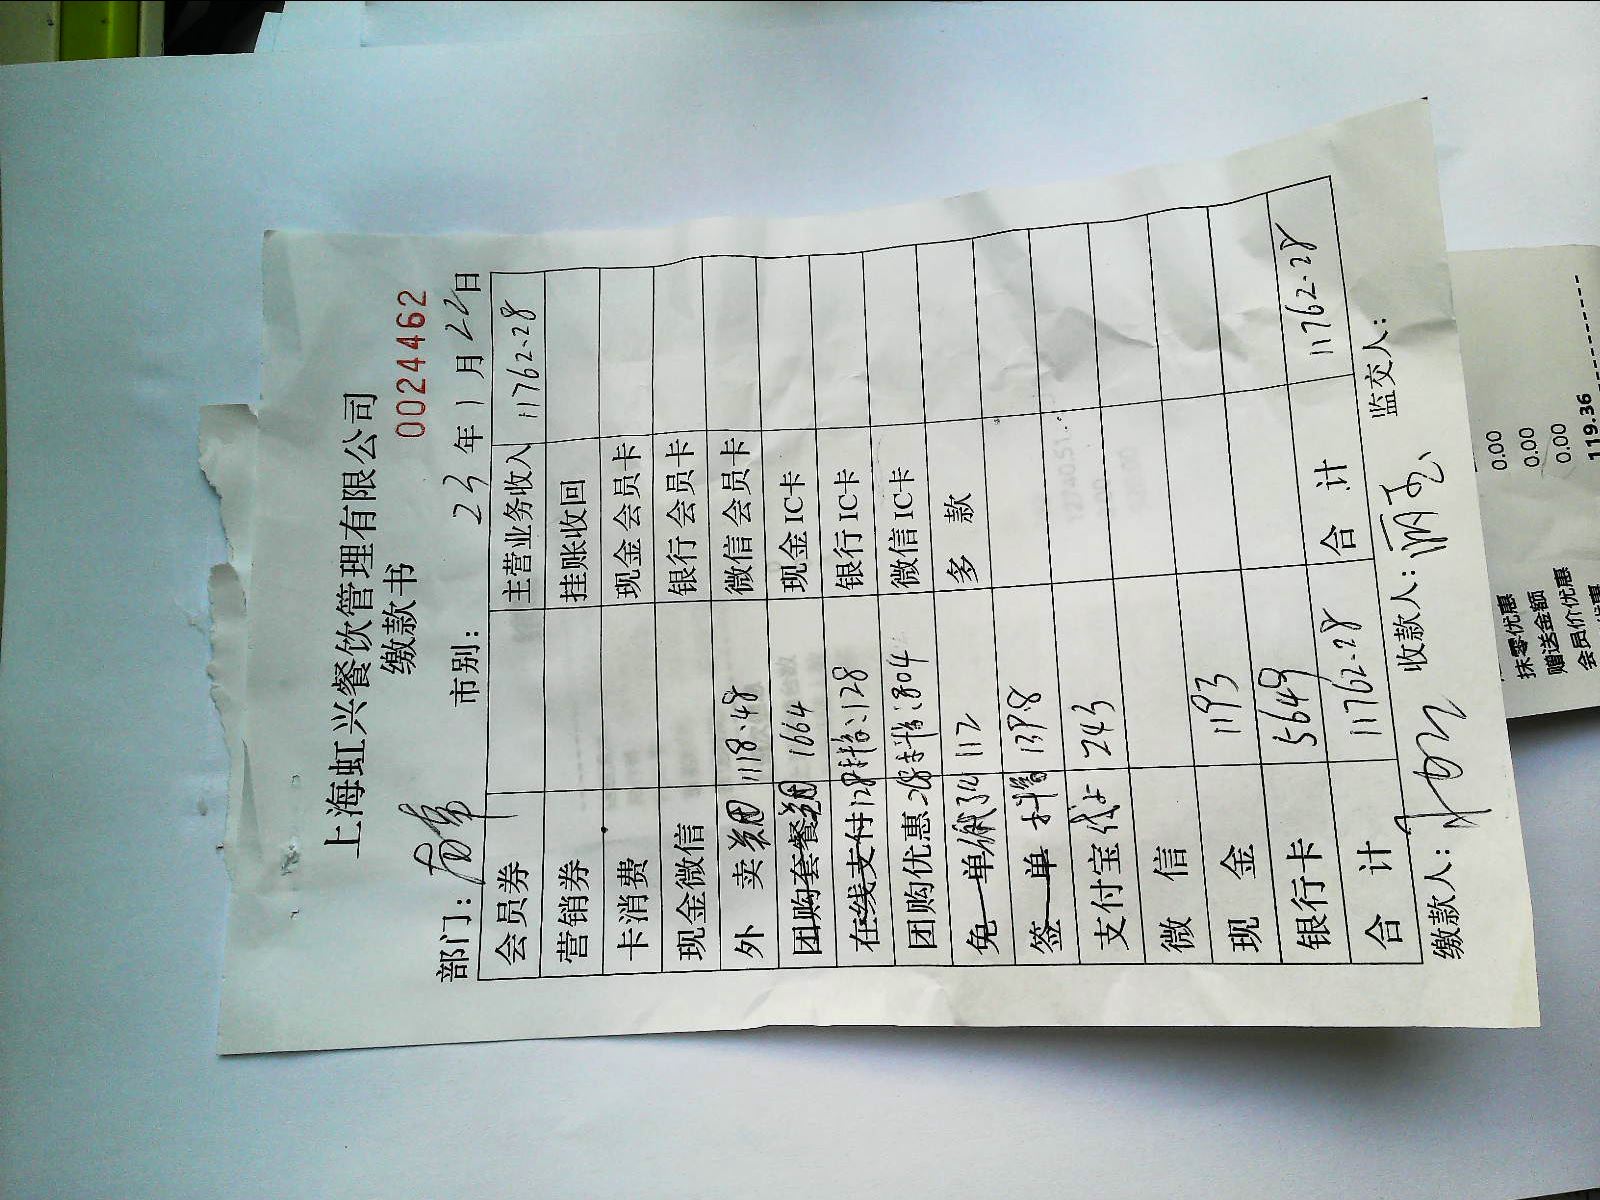 上海虹兴餐饮管理有限公司
缴款书
0024462
部门： 市别： 23年1月22日
会员券 主营业务收入 11762.28
营销券 挂账收回
卡消费 现金会员卡
现金微信 银行会员卡
外卖美团 1118.48 微信会员卡
团购套餐美团 1664 现金IC卡
在线支付128抖音:128 银行IC卡
团购优惠268抖音:804 微信IC卡
免单 112 多款
签单抖音 1398
支付宝 243
微信
现金 1193
银行卡 5649
合计 11762.28 合计 11762.28
缴款人： 收款人： 监交人：
0.00
抹零优惠 0.00
赠送金额 0.00
会员价优惠 119.36